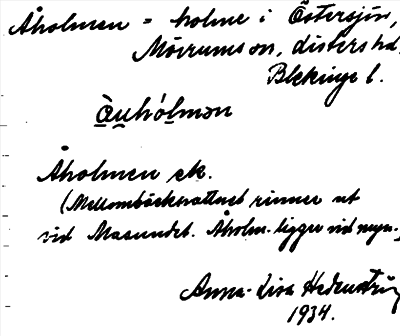 Åholmen = holme i Östersjön,
Mörrums sn, Listers hd,
Blekinge l.
å̀u̯hólmən
Åholmen ek.
(Mellombäcksvattnet rinner ut
vid Masundet. Åholm. ligger vid myn.)
Anna-Lisa Hedenström
1934.